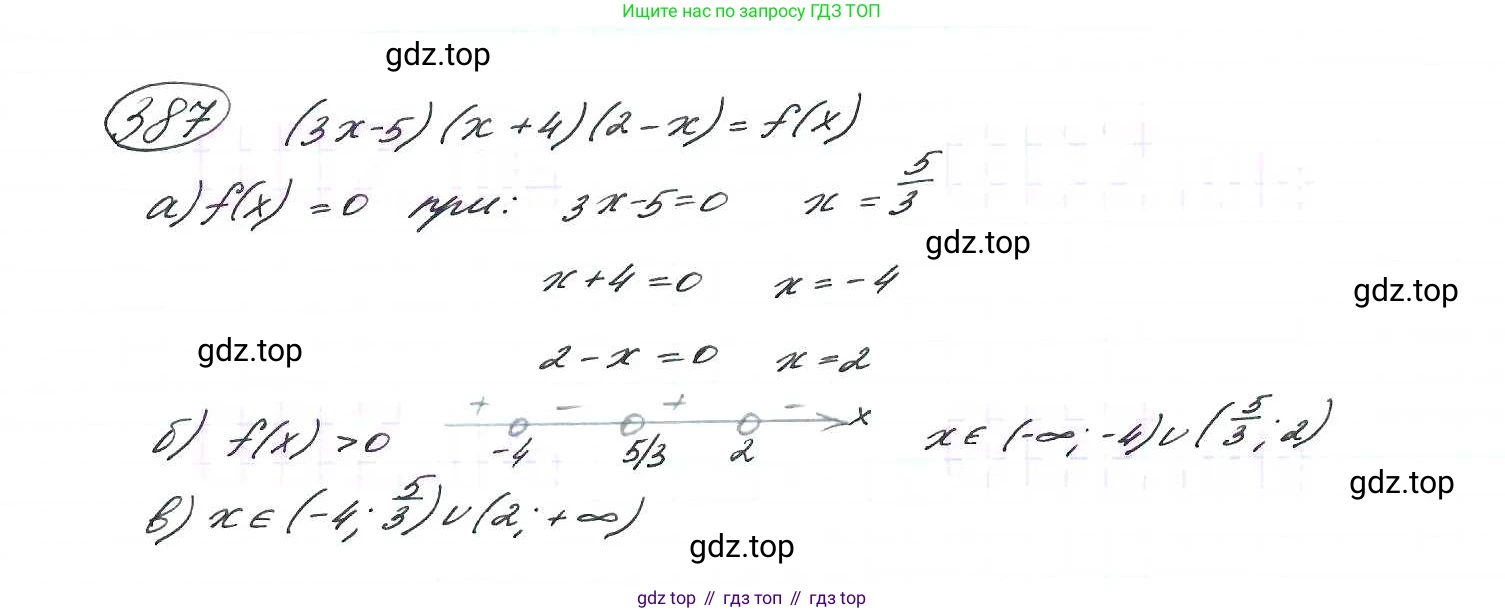 Ищите нас по запросу ГДЗ ТОП
gdz.top
387 (3x-5)(x+4)(2-x)=f(x)
а) f(x)=0 при: 3x-5=0 x=5/3
gdz.top
x+4=0 x=-4
gdz.top
gdz.top
2-x=0 x=2
+ - + -
б) f(x)>0 -4 5/3 2 x x∈(-∞;-4)∪(5/3;2)
gdz.top
в) x∈(-4;5/3)∪(2;+∞)
gdz.top
gdz top // гдз топ // гдз top